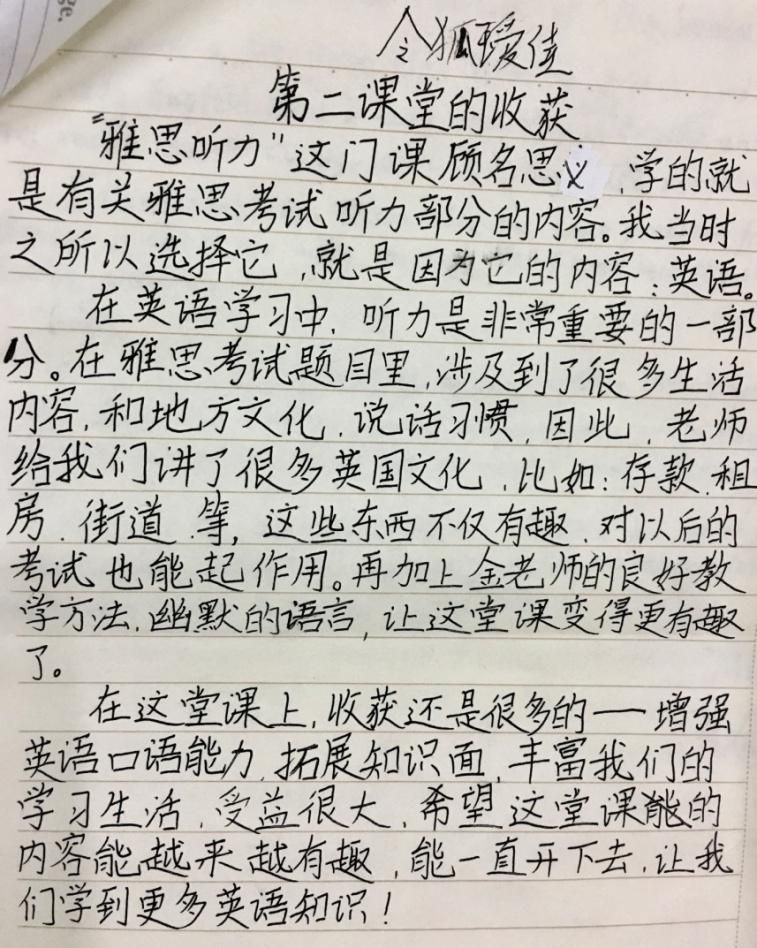 令狐瑷佳
第二课堂的收获
"雅思听力"这门课顾名思义,学的就
是有关雅思考试听力部分的内容。我当时
之所以选择它,就是因为它的内容:英语。
在英语学习中,听力是非常重要的一部
分。在雅思考试题目里,涉及到了很多生活
内容,和地方文化,说话习惯,因此,老师
给我们讲了很多英国文化,比如:存款、租
房、街道、等,这些东西不仅有趣,对以后的
考试也能起作用。再加上金老师的良好教
学方法,幽默的语言,让这堂课变得更有趣
了。
在这堂课上,收获还是很多的——增强
英语口语能力,拓展知识面,丰富我们的
学习生活,受益很大,希望这堂课的
内容能越来越有趣,能一直开下去,让我
们学到更多英语知识!